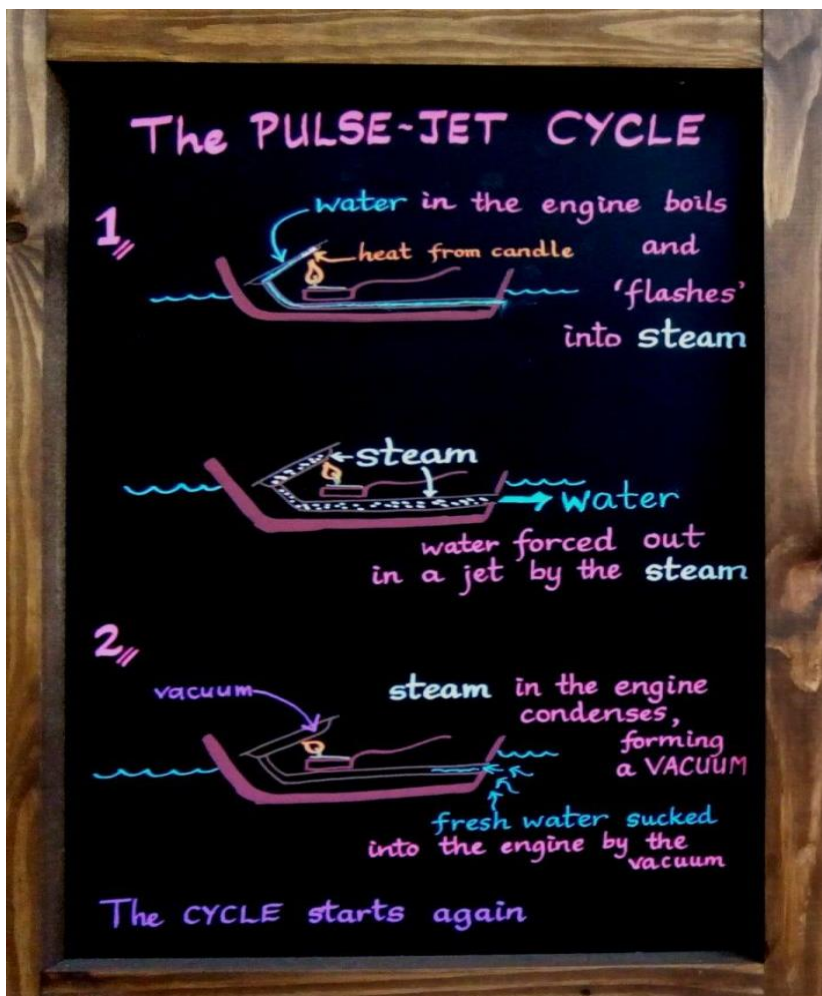 The PULSE~JET CYCLE
1
water in the engine boils
heat from candle
and
'flashes'
into steam
steam
water
water forced out
in a jet by the steam
2
vacuum
steam in the engine
condenses,
forming
a VACUUM
fresh water sucked
into the engine by the
vacuum
The CYCLE starts again